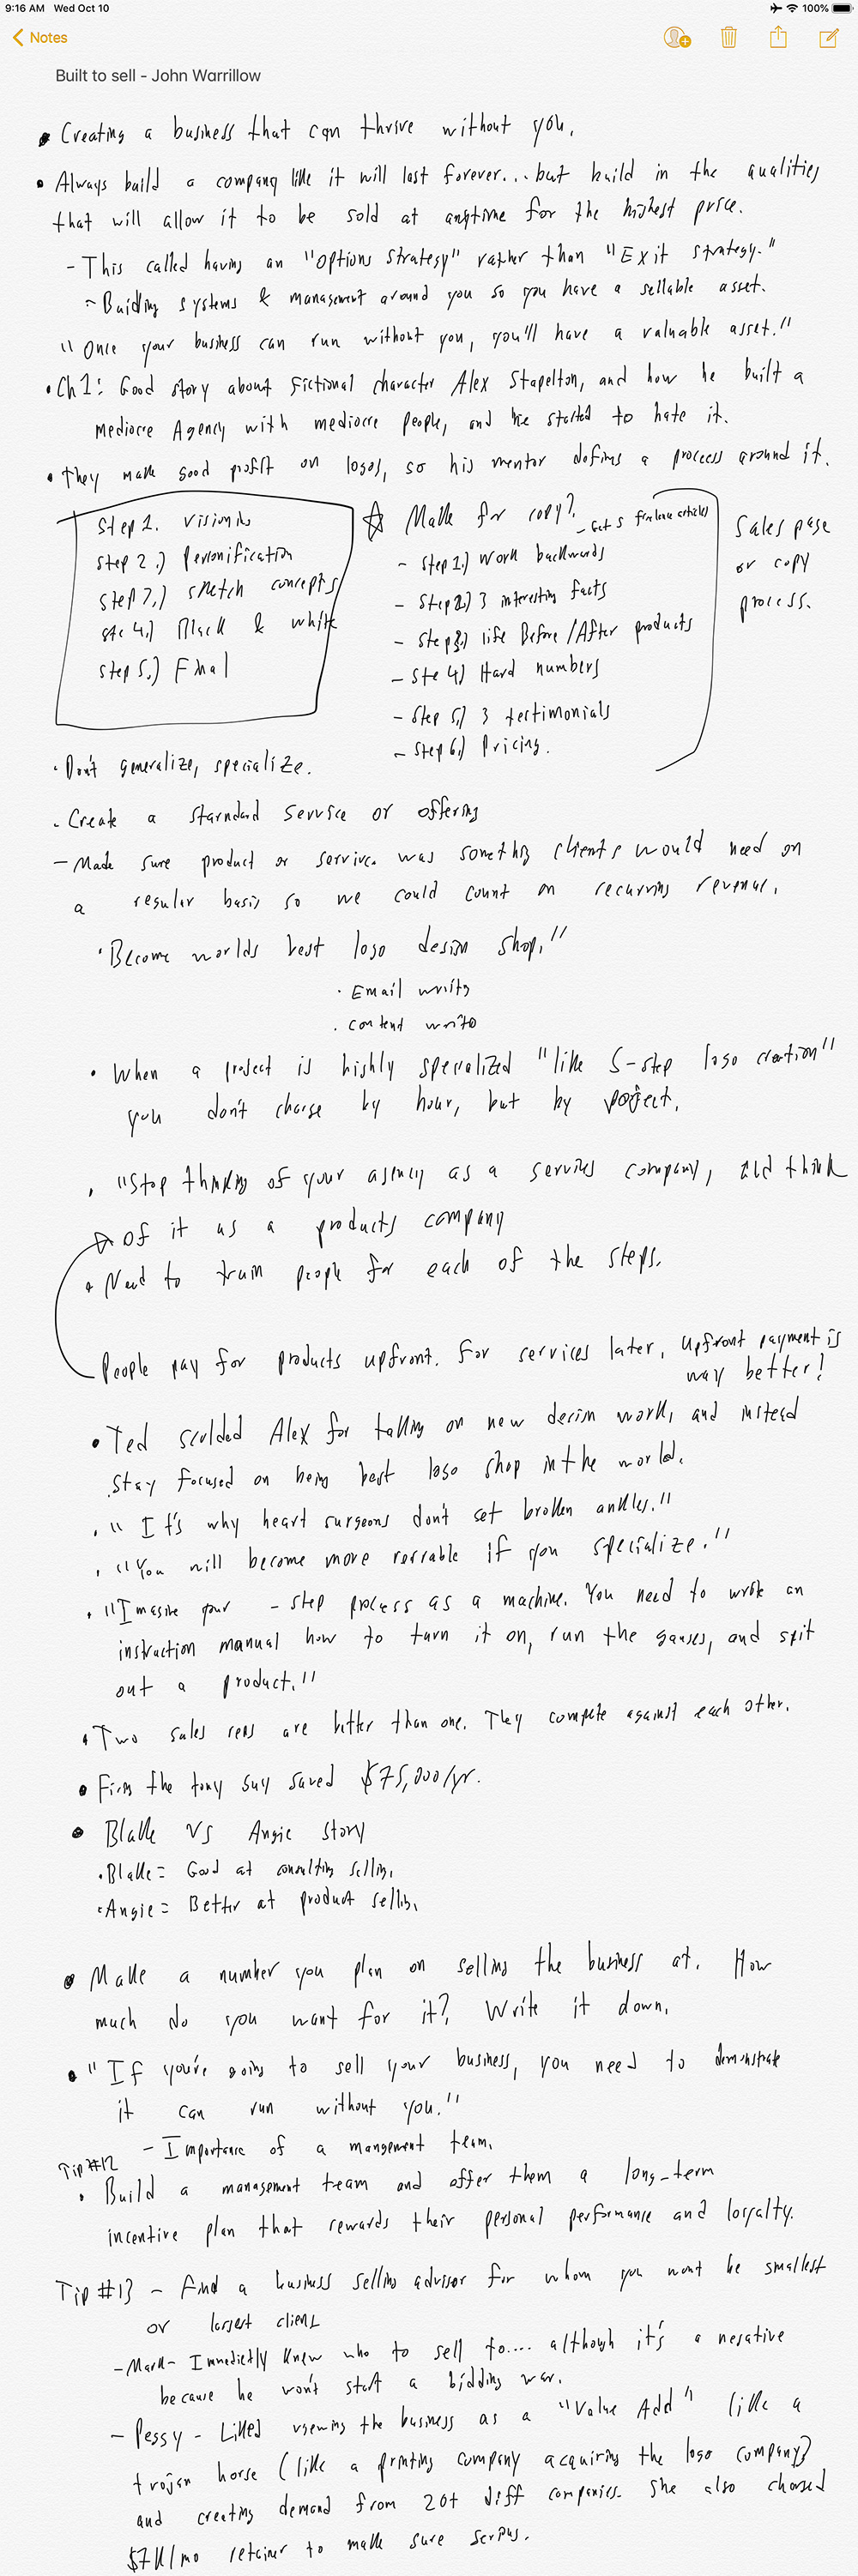 9:16 AM Wed Oct 10
100%
Notes
Built to sell - John Warrillow
• Creating a business that can thrive without you.
• Always build a company like it will last forever... but build in the qualities
that will allow it to be sold at anytime for the highest price.
- This called having an "Options Strategy" rather than "Exit strategy."
- Building systems & management around you so you have a sellable asset.
"Once your business can run without you, you'll have a valuable asset."
• Ch 1: Good story about fictional character Alex Stapelton, and how he built a
mediocre Agency with mediocre people, and he started to hate it.
• They make good profit on logos, so his mentor defines a process around it.
Step 1. Visioning
Step 2.) Personification
Step 3.) Sketch concepts
Ste 4.) Black & white
Step 5.) Final
☆ Make for copy? - Get 5 freelance articles
- Step 1.) Work backwards
- Step 2.) 3 interesting facts
- Step 3.) life Before/After products
- Ste 4) Hard numbers
- Step 5.) 3 testimonials
- Step 6.) Pricing.
Sales page
or copy
process.
• Don't generalize, specialize.
• Create a standard service or offering
- Made sure product or service was something clients would need on
a regular basis so we could count on recurring revenue.
"Become worlds best logo design shop."
• Email writing
• Content write
• When a project is highly specialized "like 5-step logo creation"
you don't charge by hour, but by project.
• "Stop thinking of your agency as a services company, and think
of it as a products company
• Need to train people for each of the steps.
People pay for products upfront. For services later. Upfront payment is
way better!
• Ted scolded Alex for taking on new design work, and instead
stay focused on being best logo shop in the world.
• "It's why heart surgeons don't set broken ankles."
• "You will become more referable if you specialize."
• "Imagine your - step process as a machine. You need to write an
instruction manual how to turn it on, run the gauges, and spit
out a product."
• Two sales reps are better than one. They compete against each other.
• Firing the tony guy saved $75,000/yr.
• Blake vs Angie story
• Blake = Good at consulting selling.
• Angie = Better at product selling.
• Make a number you plan on selling the business at. How
much do you want for it? Write it down.
• "If you're going to sell your business, you need to demonstrate
it can run without you."
- Importance of a mangement team.
Tip #12
• Build a management team and offer them a long-term
incentive plan that rewards their personal performance and loyalty.
Tip #13 - Find a business selling advisor for whom you wont be smallest
or largest client
- Mark - Immedictly knew who to sell to.... although it's a negative
because he won't start a bidding war.
- Peggy - Liked viewing the business as a "Value Add" like a
trojan horse (like a printing company acquiring the logo company)
and creating demand from 20+ diff companies. She also charged
$7k/mo retainer to make sure serious.